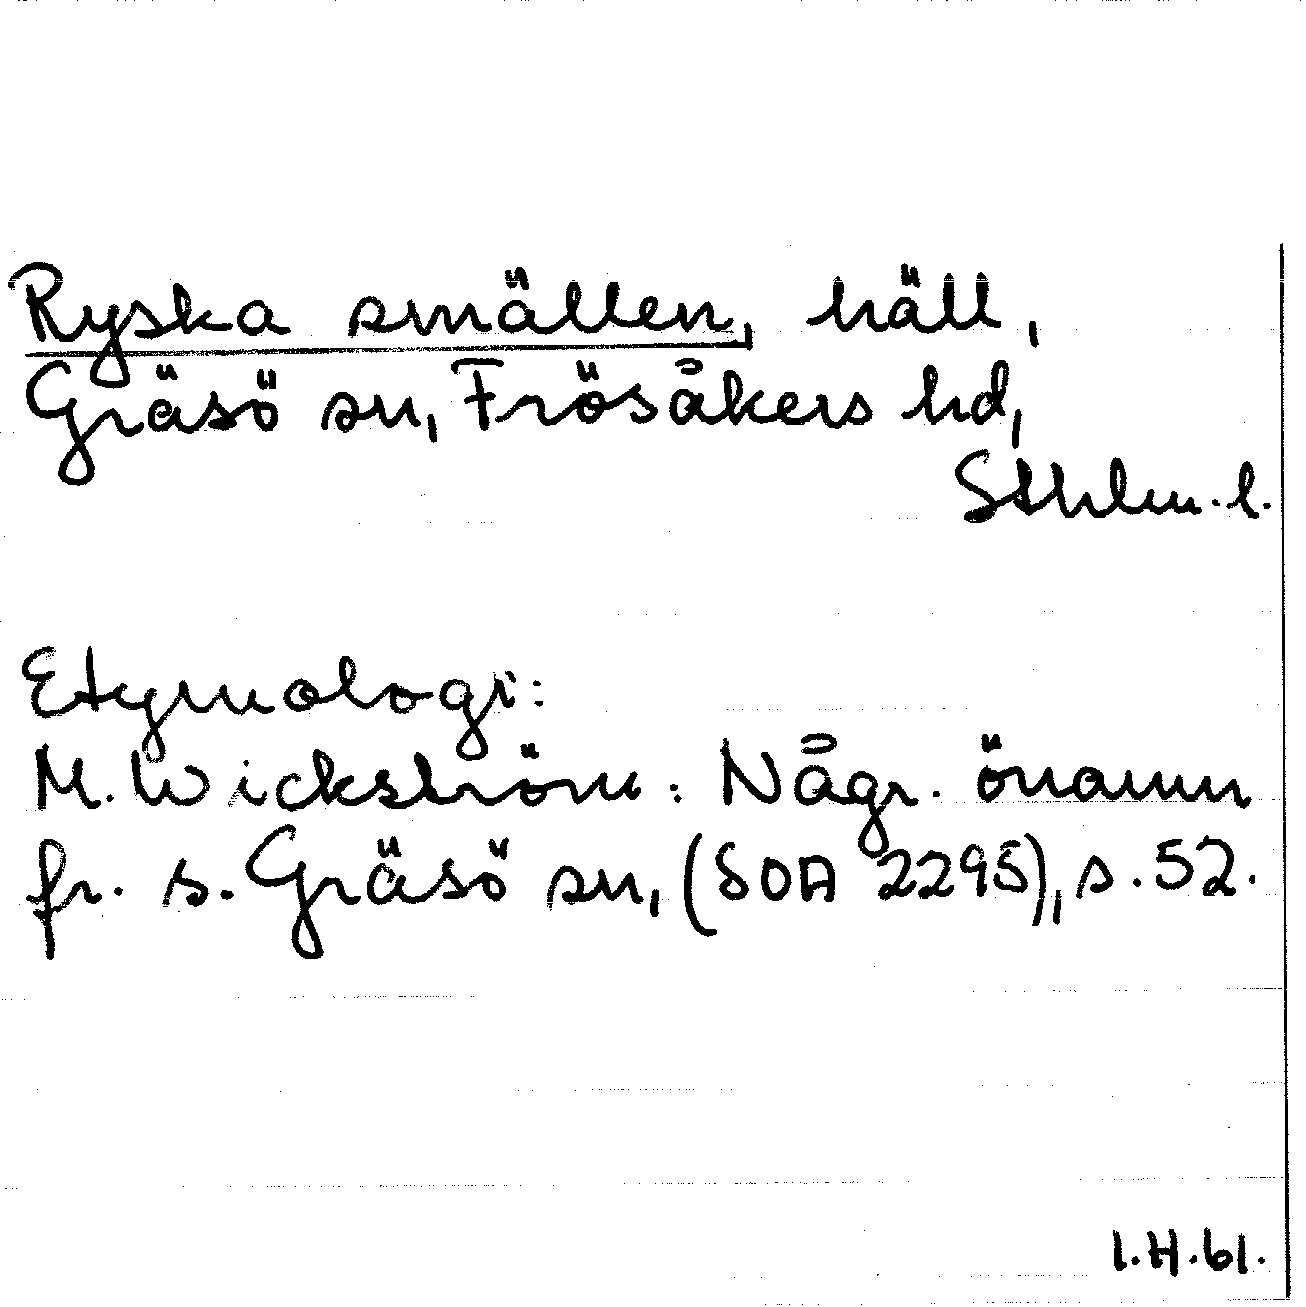 Ryska smällen, häll,
Gräsö sn, Frösåkers hd,
Sthlm. l.
Etymologi:
M. Wickström: Någr. önamn
fr. s. Gräsö sn, (SOA 2295), s. 52.
I.H.61.